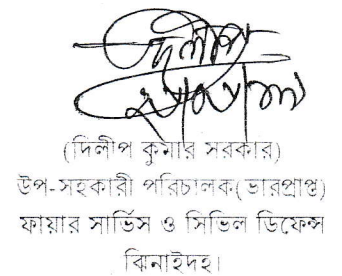 (দিলীপ কুমার সরকার)
উপ-সহকারী পরিচালক(ভারপ্রাপ্ত)
ফায়ার সার্ভিস ও সিভিল ডিফেন্স
ঝিনাইদহ।